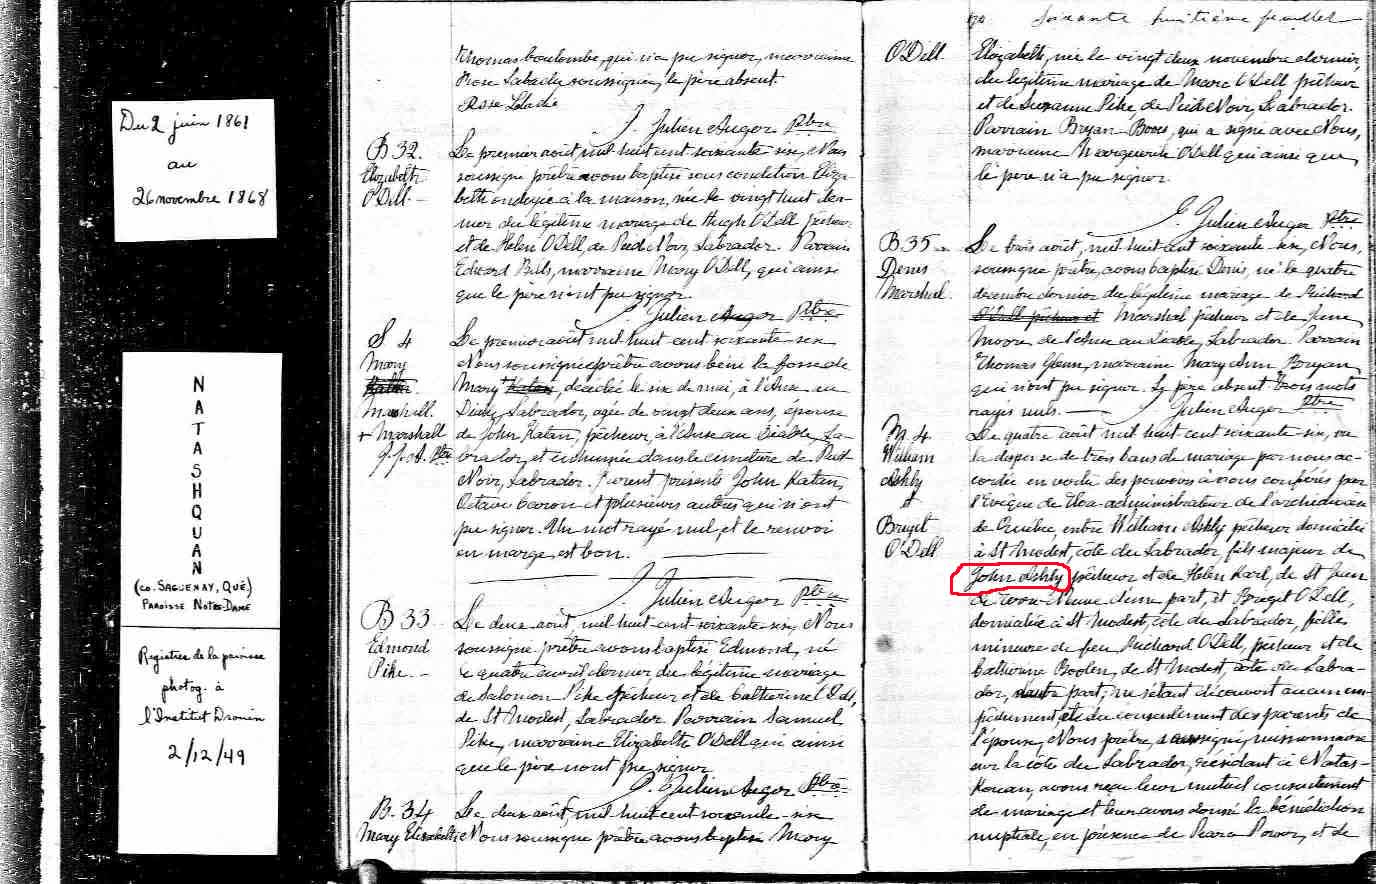 Du 2 juin 1861
au
26 novembre 1868
NATASHQUAN
(CO. SAGUENAY, QUÉ.)
PAROISSE NOTRE-DAME
Registres de la paroisse
photog. à
l'Institut Drouin
2/12/49
Thomas boulombe, qui n'a pu signer, marraine
Rose Labadie soussignée, le père absent.
Rose Labadie
J. Julien Auger Ptre
B 32.
Elizabeth
O'Dell. -
Le premier août mil huit cent soixante-six, Nous
soussigné prêtre avons baptisé sous condition Eliza-
beth ondoyée à la maison, née le vingt huit der-
nier du légitime mariage de Hugh O'Dell pêcheur
et de Helen O'Dell, de Pied Noir, Labrador. Parrain
Edward Bils, marraine Mary O'Dell, qui ainsi
que le père n'ont pu signer.
Julien Auger Ptre
S 4
Mary
Marshall.
+ Marshall
J. J. A. Ptre
Le premier août mil huit cent soixante six
Nous soussigné prêtre avons béni la fosse de
Mary Katan, décédée le six de mai, à l'Anse au
Diable, Labrador, agée de vingt deux ans, épouse
de John Katan, pêcheur, à l'Anse au Diable, La-
brador, et inhumée dans le cimetière de Pied
Noir, Labrador. Furent présents John Katan,
Octave baron et plusieurs autres qui n'ont
pu signer. Un mot rayé nul, et le renvoi
en marge est bon.
J. Julien Auger Ptre
B 33
Edmond
Pike. -
Le deux août, mil huit-cent soixante-six, Nous
soussigné prêtre avons baptisé Edmond, né
le quatre avril dernier du légitime mariage
de Salomon Pike pêcheur et de Catherine O'Dell,
de St Modest, Labrador Parrain Samuel
Pike, marraine Elizabeth O'Dell qui ainsi
que le père n'ont pu signer
J. Julien Auger Ptre
B. 34
Mary Elizabeth
Le deux août, mil huit cent soixante-six
Nous soussigné prêtre avons baptisé Mary
soixante huitième feuillet
O'Dell.
Elizabeth, née le vingt deux novembre dernier,
du légitime mariage de Marc O'Dell pêcheur
et de Suzanne Pike, de Pied Noir, Labrador.
Parrain Bryan Boses, qui a signé avec Nous,
marraine Marguerite O'Dell qui ainsi que
le père n'a pu signer.
J. Julien Auger Ptre
B 35 -
Denis
Marshal.
Le trois août, mil huit cent soixante-six, Nous,
soussigné prêtre, avons baptisé Denis, né le quatre
décembre dernier du légitime mariage de Richard
O'Dell pêcheur et Marshal pêcheur et de Jane
Moore de l'Anse au Diable, Labrador. Parrain
Thomas Glenn, marraine Mary Ann Bryan
qui n'ont pu signer. Le père absent trois mots
rayés nuls. -
Julien Auger Ptre
M. 4
William
Ashly
et
Bruget
O'Dell
Le quatre août mil huit-cent soixante-six, vu
la dispense de trois bans de mariage par nous ac-
cordée en vertu des pouvoirs à nous conférés par
l'Evêque de Tloa administrateur de l'archidiocèse
de Québec, entre William Ashly pêcheur domicilié
à St Modest, côte du Labrador, fils majeur de
John Ashly pêcheur et de Helen Karl, de St Jean
de Terre-Neuve d'une part, et Bruget O'Dell,
domiciliée à St Modest, côte du Labrador, filles
mineure de feu Richard O'Dell, pêcheur et de
Catherine Boolen, de St Modest, côte du Labra-
dor, d'autre part; ne s'étant découvert aucun em-
pêchement, et du consentement des parents de
l'épouse, Nous prêtre, soussigné, missionnaire
sur la côte du Labrador, résidant à Natas-
kouan, avons reçu leur mutuel consentement
de mariage et leur avons donné la bénédiction
nuptiale, en présence de Peara Power, et de